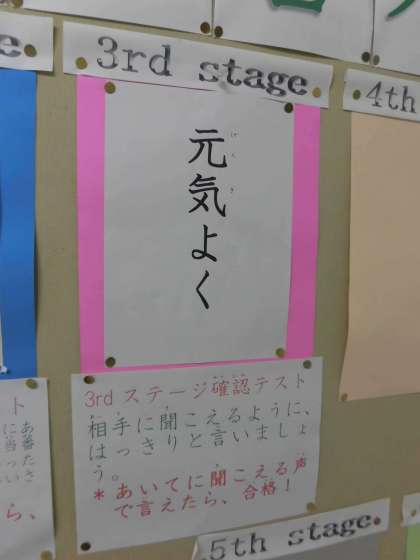 3rd stage
4th
元気よく
げんき
3rd ステージ確認テスト
相手に聞こえるように、
はっきりと言いましょ
う。
*あいてに聞こえる声
で言えたら、合格！
5th stage